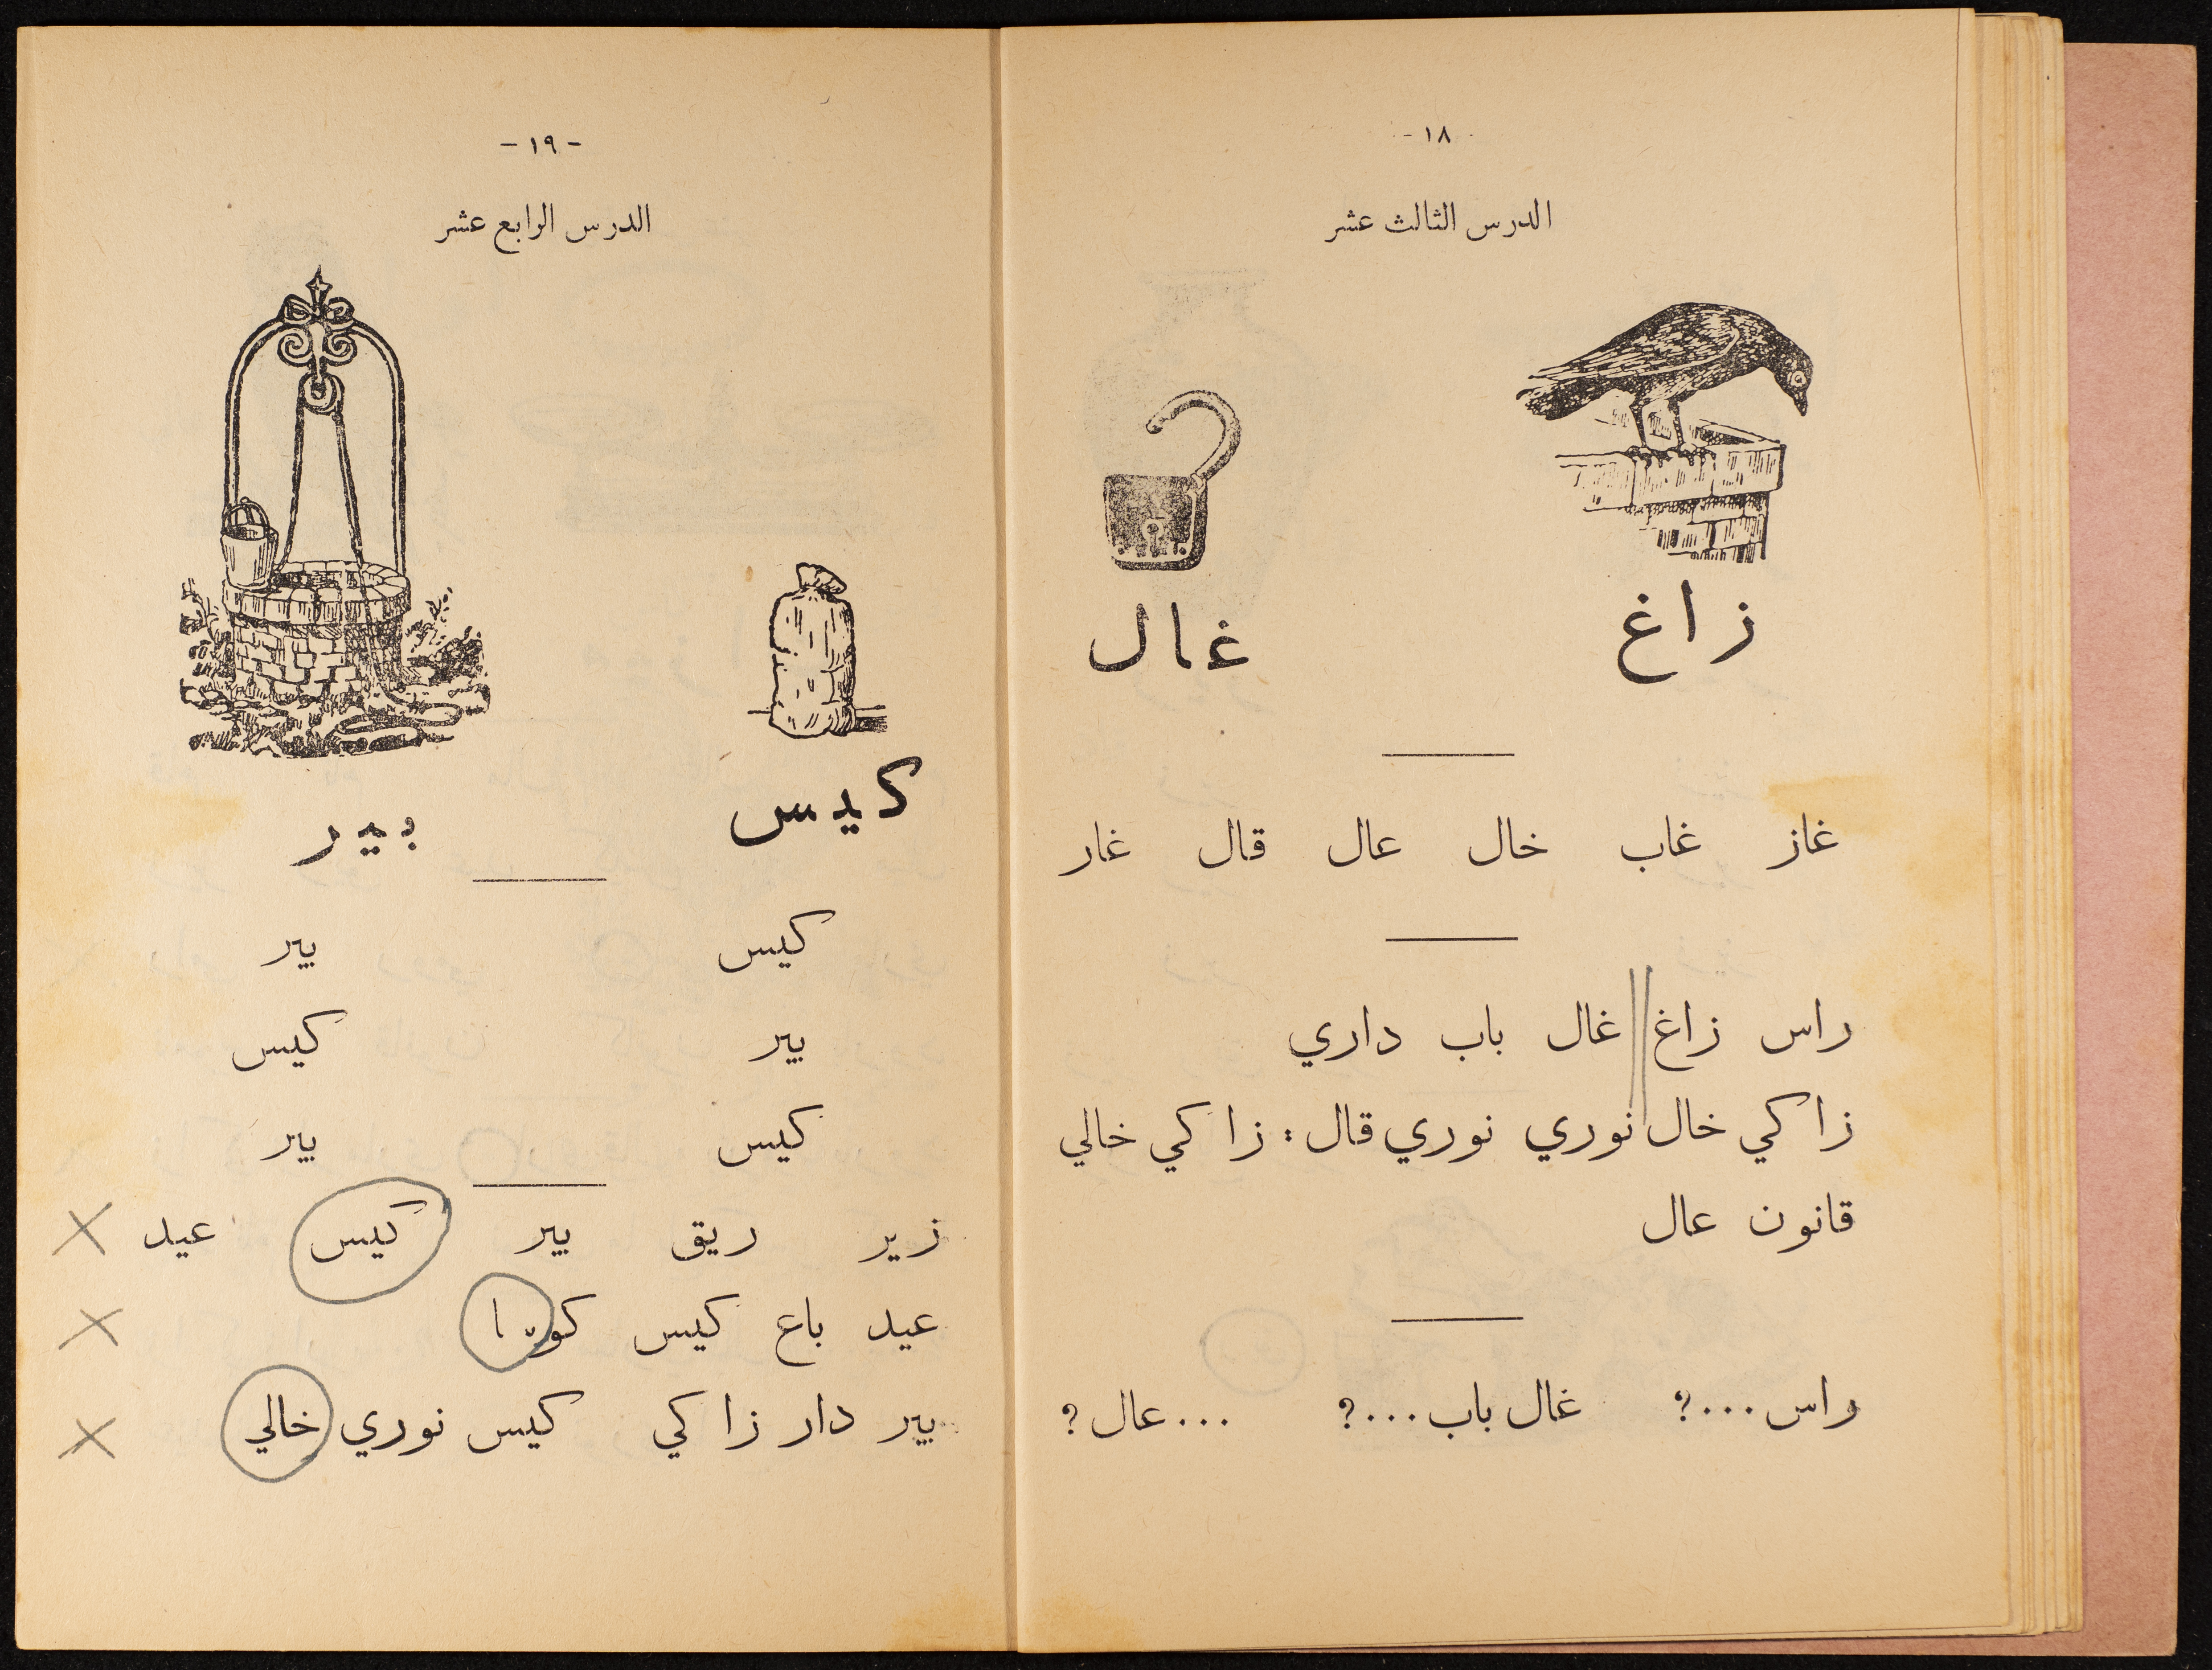 - ١٨ -
الدرس الثالث عشر
زاغ غال
غاز غاب خال عال قال غار
راس زاغ غال باب داري
زاكي خال نوري نوري قال : زاكي خالي
قانون عال
راس...؟ غال باب...؟ ...عال ؟
- ١٩ -
الدرس الرابع عشر
كيس بير
كيس بير
بير كيس
كيس بير
زير ريق بير كيس عيد
عيد باع كيس
بير دار زاكي كيس نوري خالي